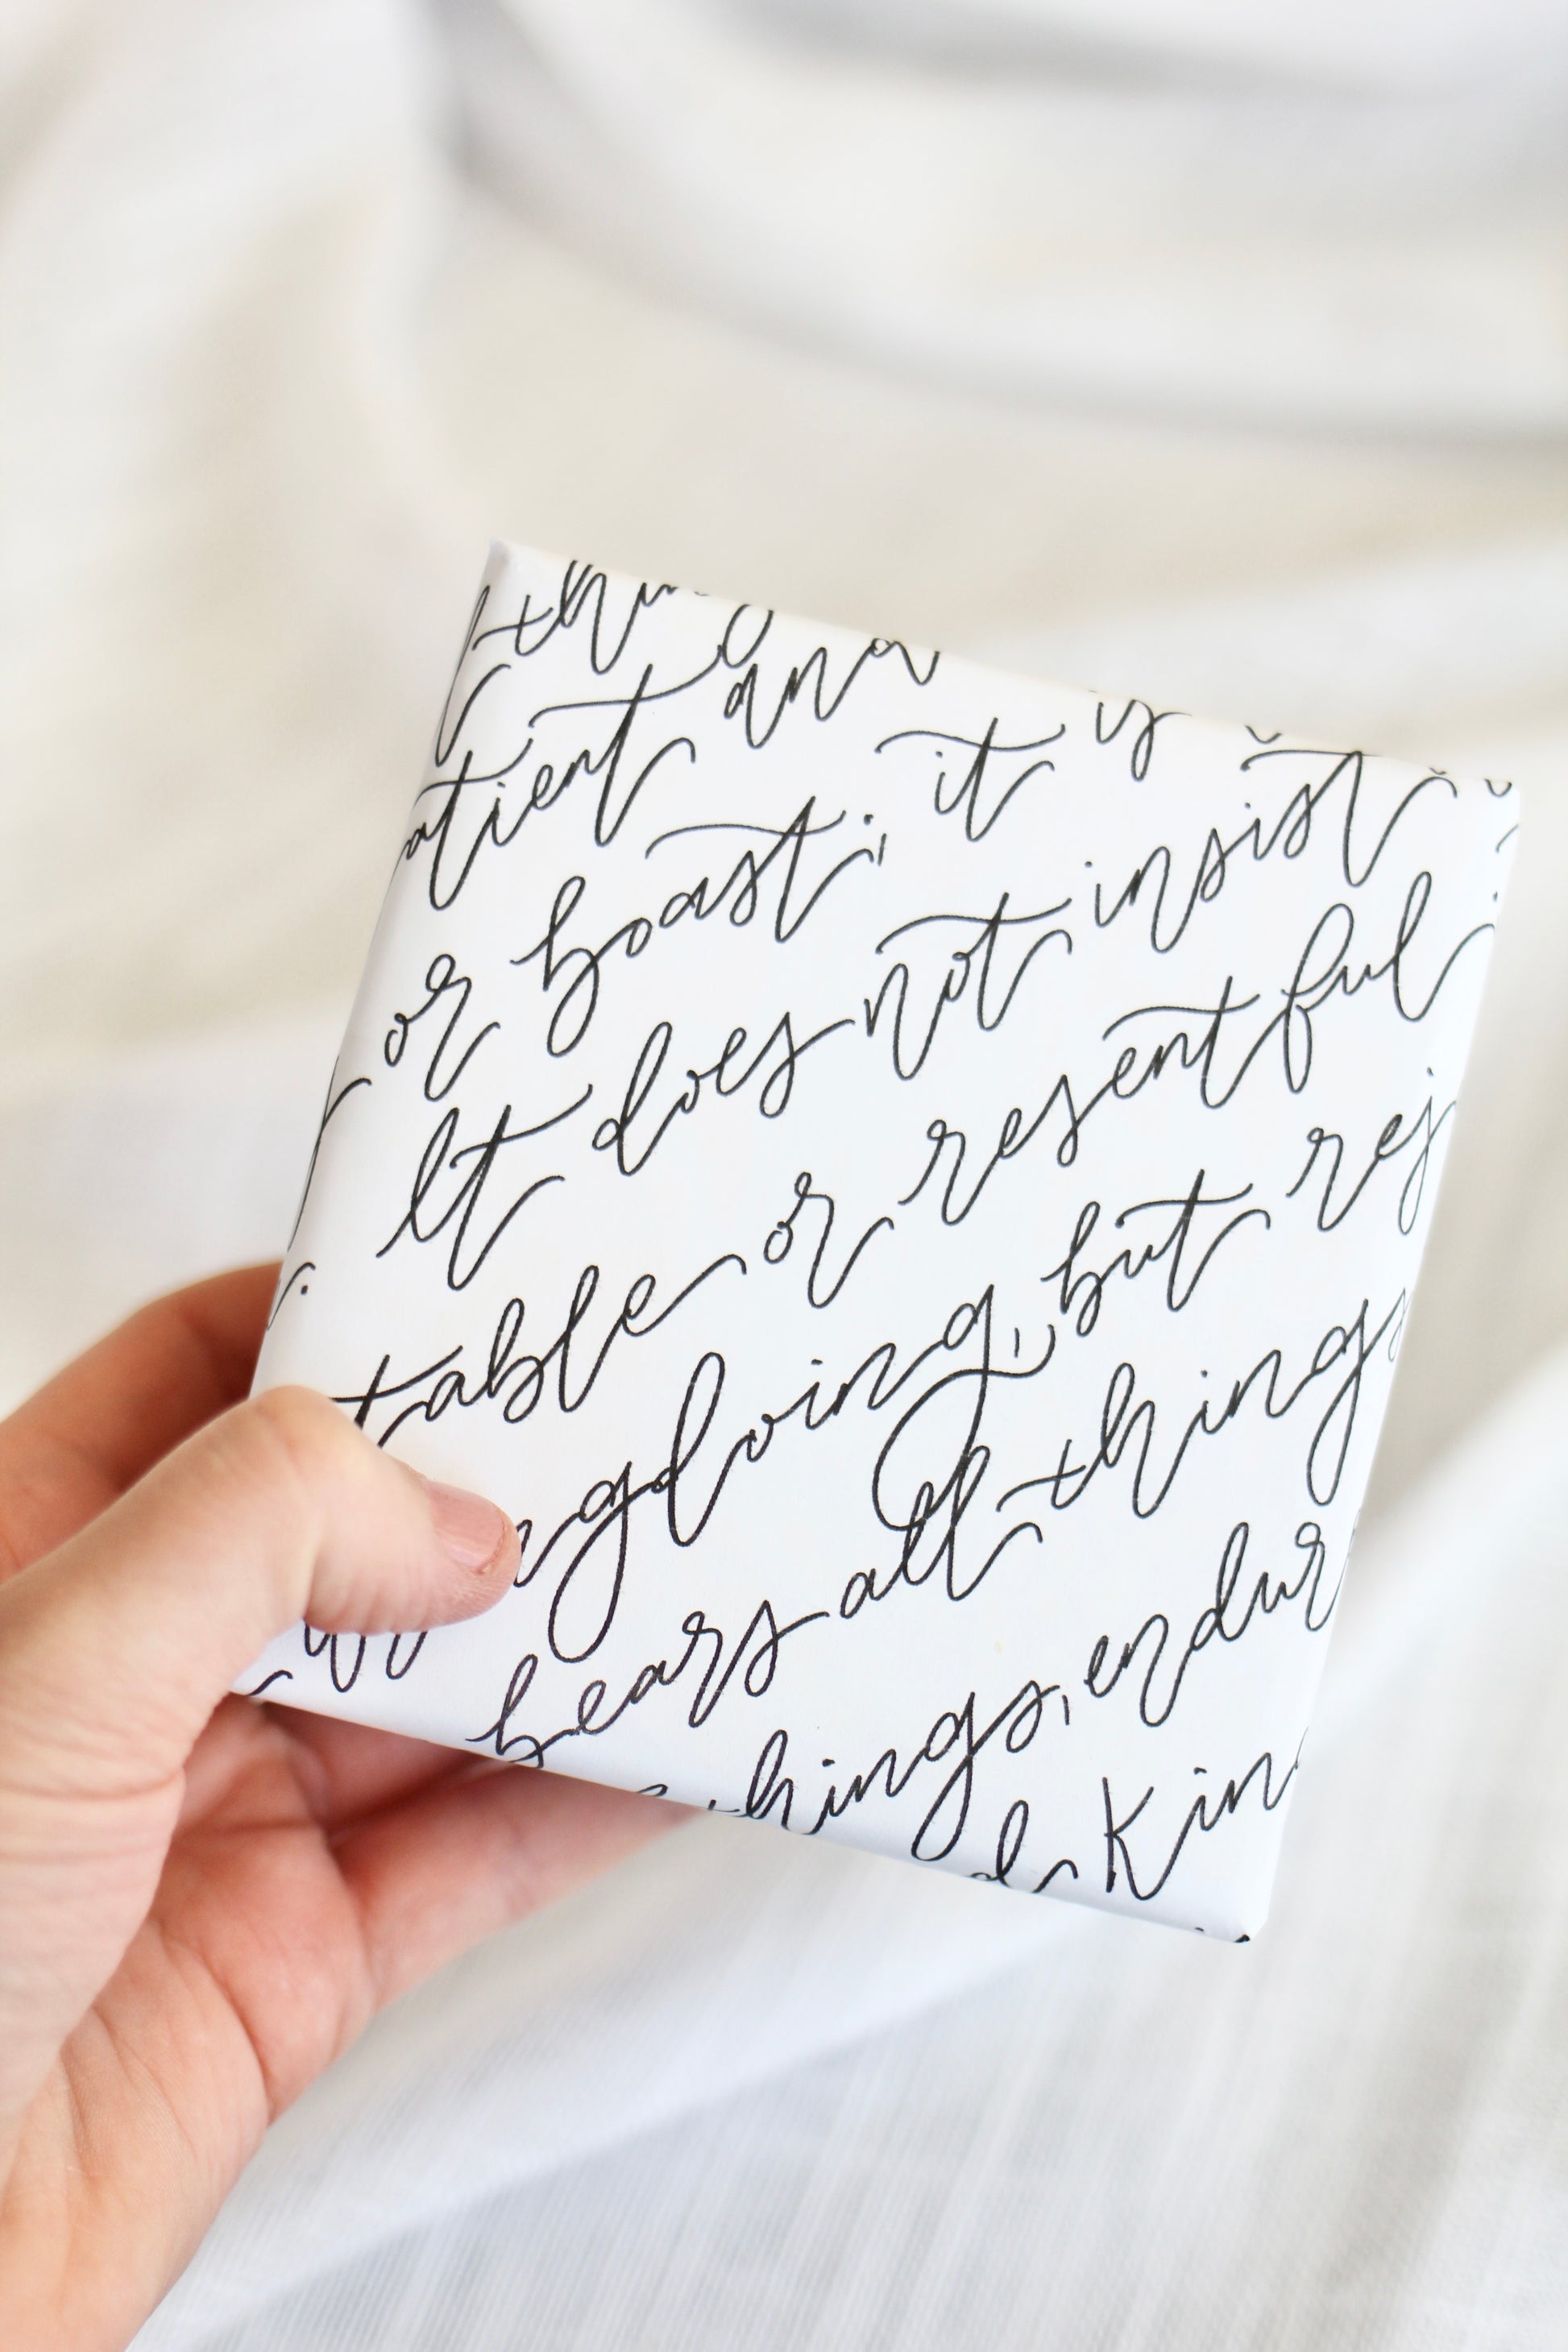 thing
atient and is
or boast; it
It does not insist
table or resentful
ngdoing, but rej
bears all things
hings, endur
d kin